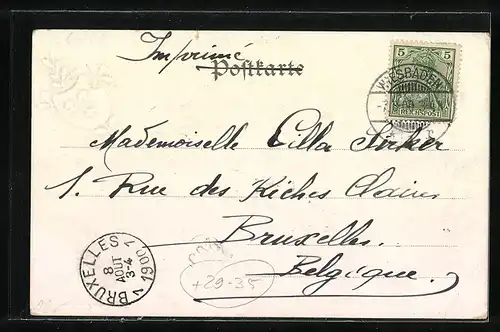 Imprimé
Postkarte
5
REICHSPOST
WIESBADEN
Mademoiselle Cilla
1. Rue des Riches Claires
Bruxelles.
Belgique.
BRUXELLES 1
1900
8
AOUT
3-4
+29-35